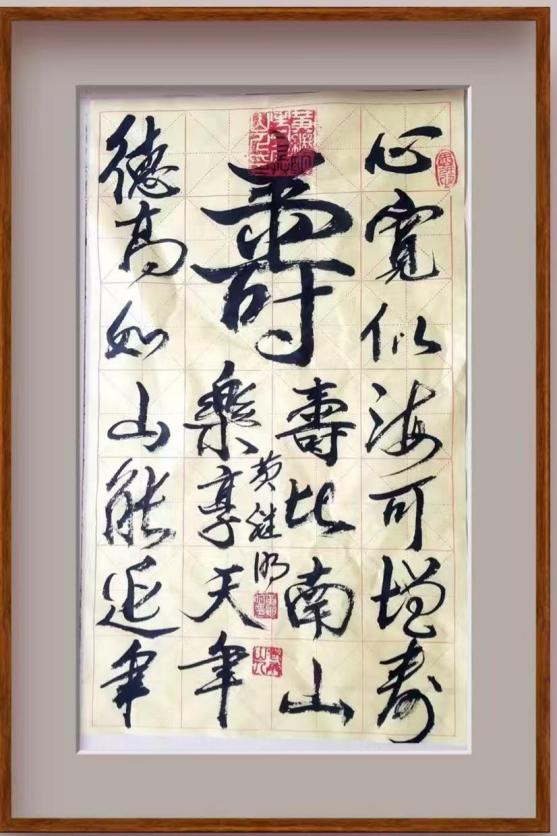 心寬似海可增寿
壽
壽比南山
樂享天年
黄继明
德高如山能延年